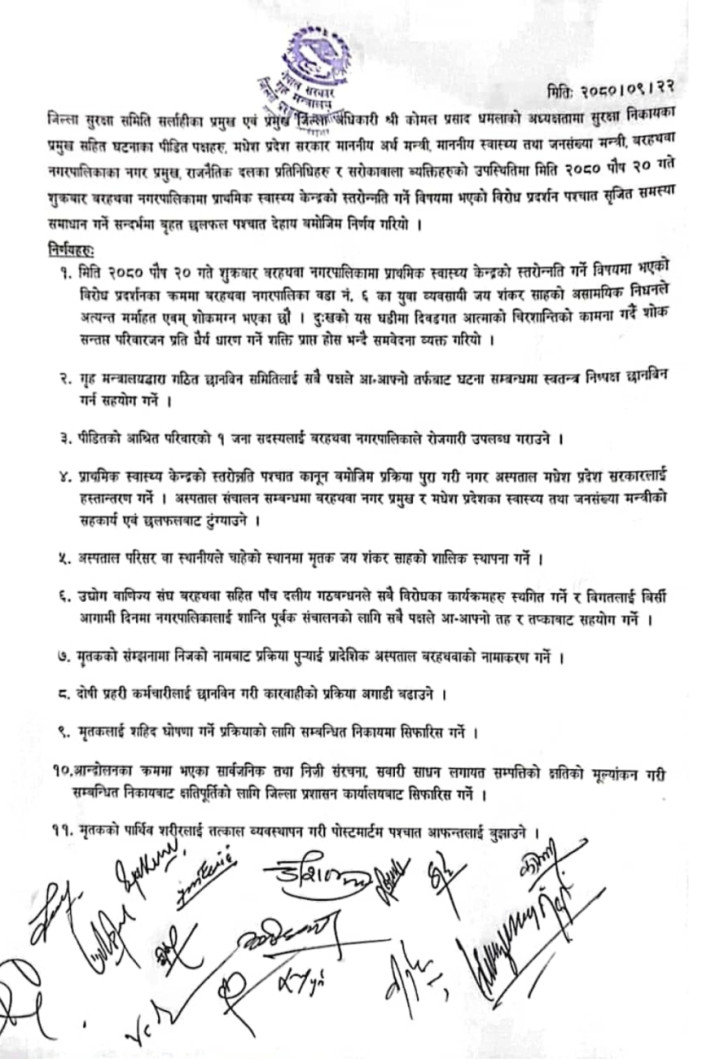 नेपाल सरकार
गृह मन्त्रालय
मितिः २०८०।०९।२२
जिल्ला सुरक्षा समिति सर्लाहीका प्रमुख एवं प्रमुख जिल्ला अधिकारी श्री कोमल प्रसाद धमलाको अध्यक्षतामा सुरक्षा निकायका
प्रमुख सहित घटनाका पीडित पक्षहरु, मधेश प्रदेश सरकार माननीय अर्थ मन्त्री, माननीय स्वास्थ्य तथा जनसंख्या मन्त्री, बरहथवा
नगरपालिकाका नगर प्रमुख, राजनैतिक दलका प्रतिनिधिहरु र सरोकावाला व्यक्तिहरुको उपस्थितिमा मिति २०८० पौष २० गते
शुक्रबार बरहथवा नगरपालिकामा प्राथमिक स्वास्थ्य केन्द्रको स्तरोन्नति गर्ने विषयमा भएको विरोध प्रदर्शन पश्चात सृजित समस्या
समाधान गर्ने सन्दर्भमा बृहत छलफल पश्चात देहाय बमोजिम निर्णय गरियो ।
निर्णयहरुः
१. मिति २०८० पौष २० गते शुक्रबार बरहथवा नगरपालिकामा प्राथमिक स्वास्थ्य केन्द्रको स्तरोन्नति गर्ने विषयमा भएको
विरोध प्रदर्शनका क्रममा बरहथवा नगरपालिका वडा नं. ६ का युवा व्यवसायी जय शंकर साहको असामयिक निधनले
अत्यन्त मर्माहत एवम् शोकमग्न भएका छौ । दुःखको यस घडीमा दिवङगत आत्माको चिरशान्तिको कामना गर्दै शोक
सन्तप्त परिवारजन प्रति धैर्य धारण गर्ने शक्ति प्राप्त होस भन्दै समवेदना व्यक्त गरियो ।
२. गृह मन्त्रालयद्वारा गठित छानविन समितिलाई सबै पक्षले आ-आफ्नो तर्फबाट घटना सम्बन्धमा स्वतन्त्र निष्पक्ष छानविन
गर्न सहयोग गर्ने ।
३. पीडितको आश्रित परिवारको १ जना सदस्यलाई बरहथवा नगरपालिकाले रोजगारी उपलब्ध गराउने ।
४. प्राथमिक स्वास्थ्य केन्द्रको स्तरोन्नति पश्चात कानून बमोजिम प्रक्रिया पुरा गरी नगर अस्पताल मधेश प्रदेश सरकारलाई
हस्तान्तरण गर्ने । अस्पताल संचालन सम्बन्धमा बरहथवा नगर प्रमुख र मधेश प्रदेशका स्वास्थ्य तथा जनसंख्या मन्त्रीको
सहकार्य एवं छलफलबाट टुंग्याउने ।
५. अस्पताल परिसर वा स्थानीयले चाहेको स्थानमा मृतक जय शंकर साहको शालिक स्थापना गर्ने ।
६. उद्योग वाणिज्य संघ बरहथवा सहित पाँच दलीय गठबन्धनले सबै विरोधका कार्यक्रमहरु स्थगित गर्ने र विगतलाई बिर्सी
आगामी दिनमा नगरपालिकालाई शान्ति पूर्वक संचालनको लागि सबै पक्षले आ-आफ्नो तह र तप्काबाट सहयोग गर्ने ।
७. मृतकको संम्झनामा निजको नामबाट प्रक्रिया पुर्‍याई प्रादेशिक अस्पताल बरहथवाको नामाकरण गर्ने ।
८. दोषी प्रहरी कर्मचारीलाई छानविन गरी कारवाहीको प्रक्रिया अगाडी बढाउने ।
९. मृतकलाई शहिद घोषणा गर्ने प्रक्रियाको लागि सम्बन्धित निकायमा सिफारिस गर्ने ।
१०.आन्दोलनका क्रममा भएका सार्वजनिक तथा निजी संरचना, सवारी साधन लगायत सम्पत्तिको क्षतिको मूल्यांकन गरी
सम्बन्धित निकायबाट क्षतिपूर्तिको लागि जिल्ला प्रशासन कार्यालयबाट सिफारिस गर्ने ।
११. मृतकको पार्थिव शरीरलाई तत्काल व्यवस्थापन गरी पोस्टमार्टम पश्चात आफन्तलाई बुझाउने ।